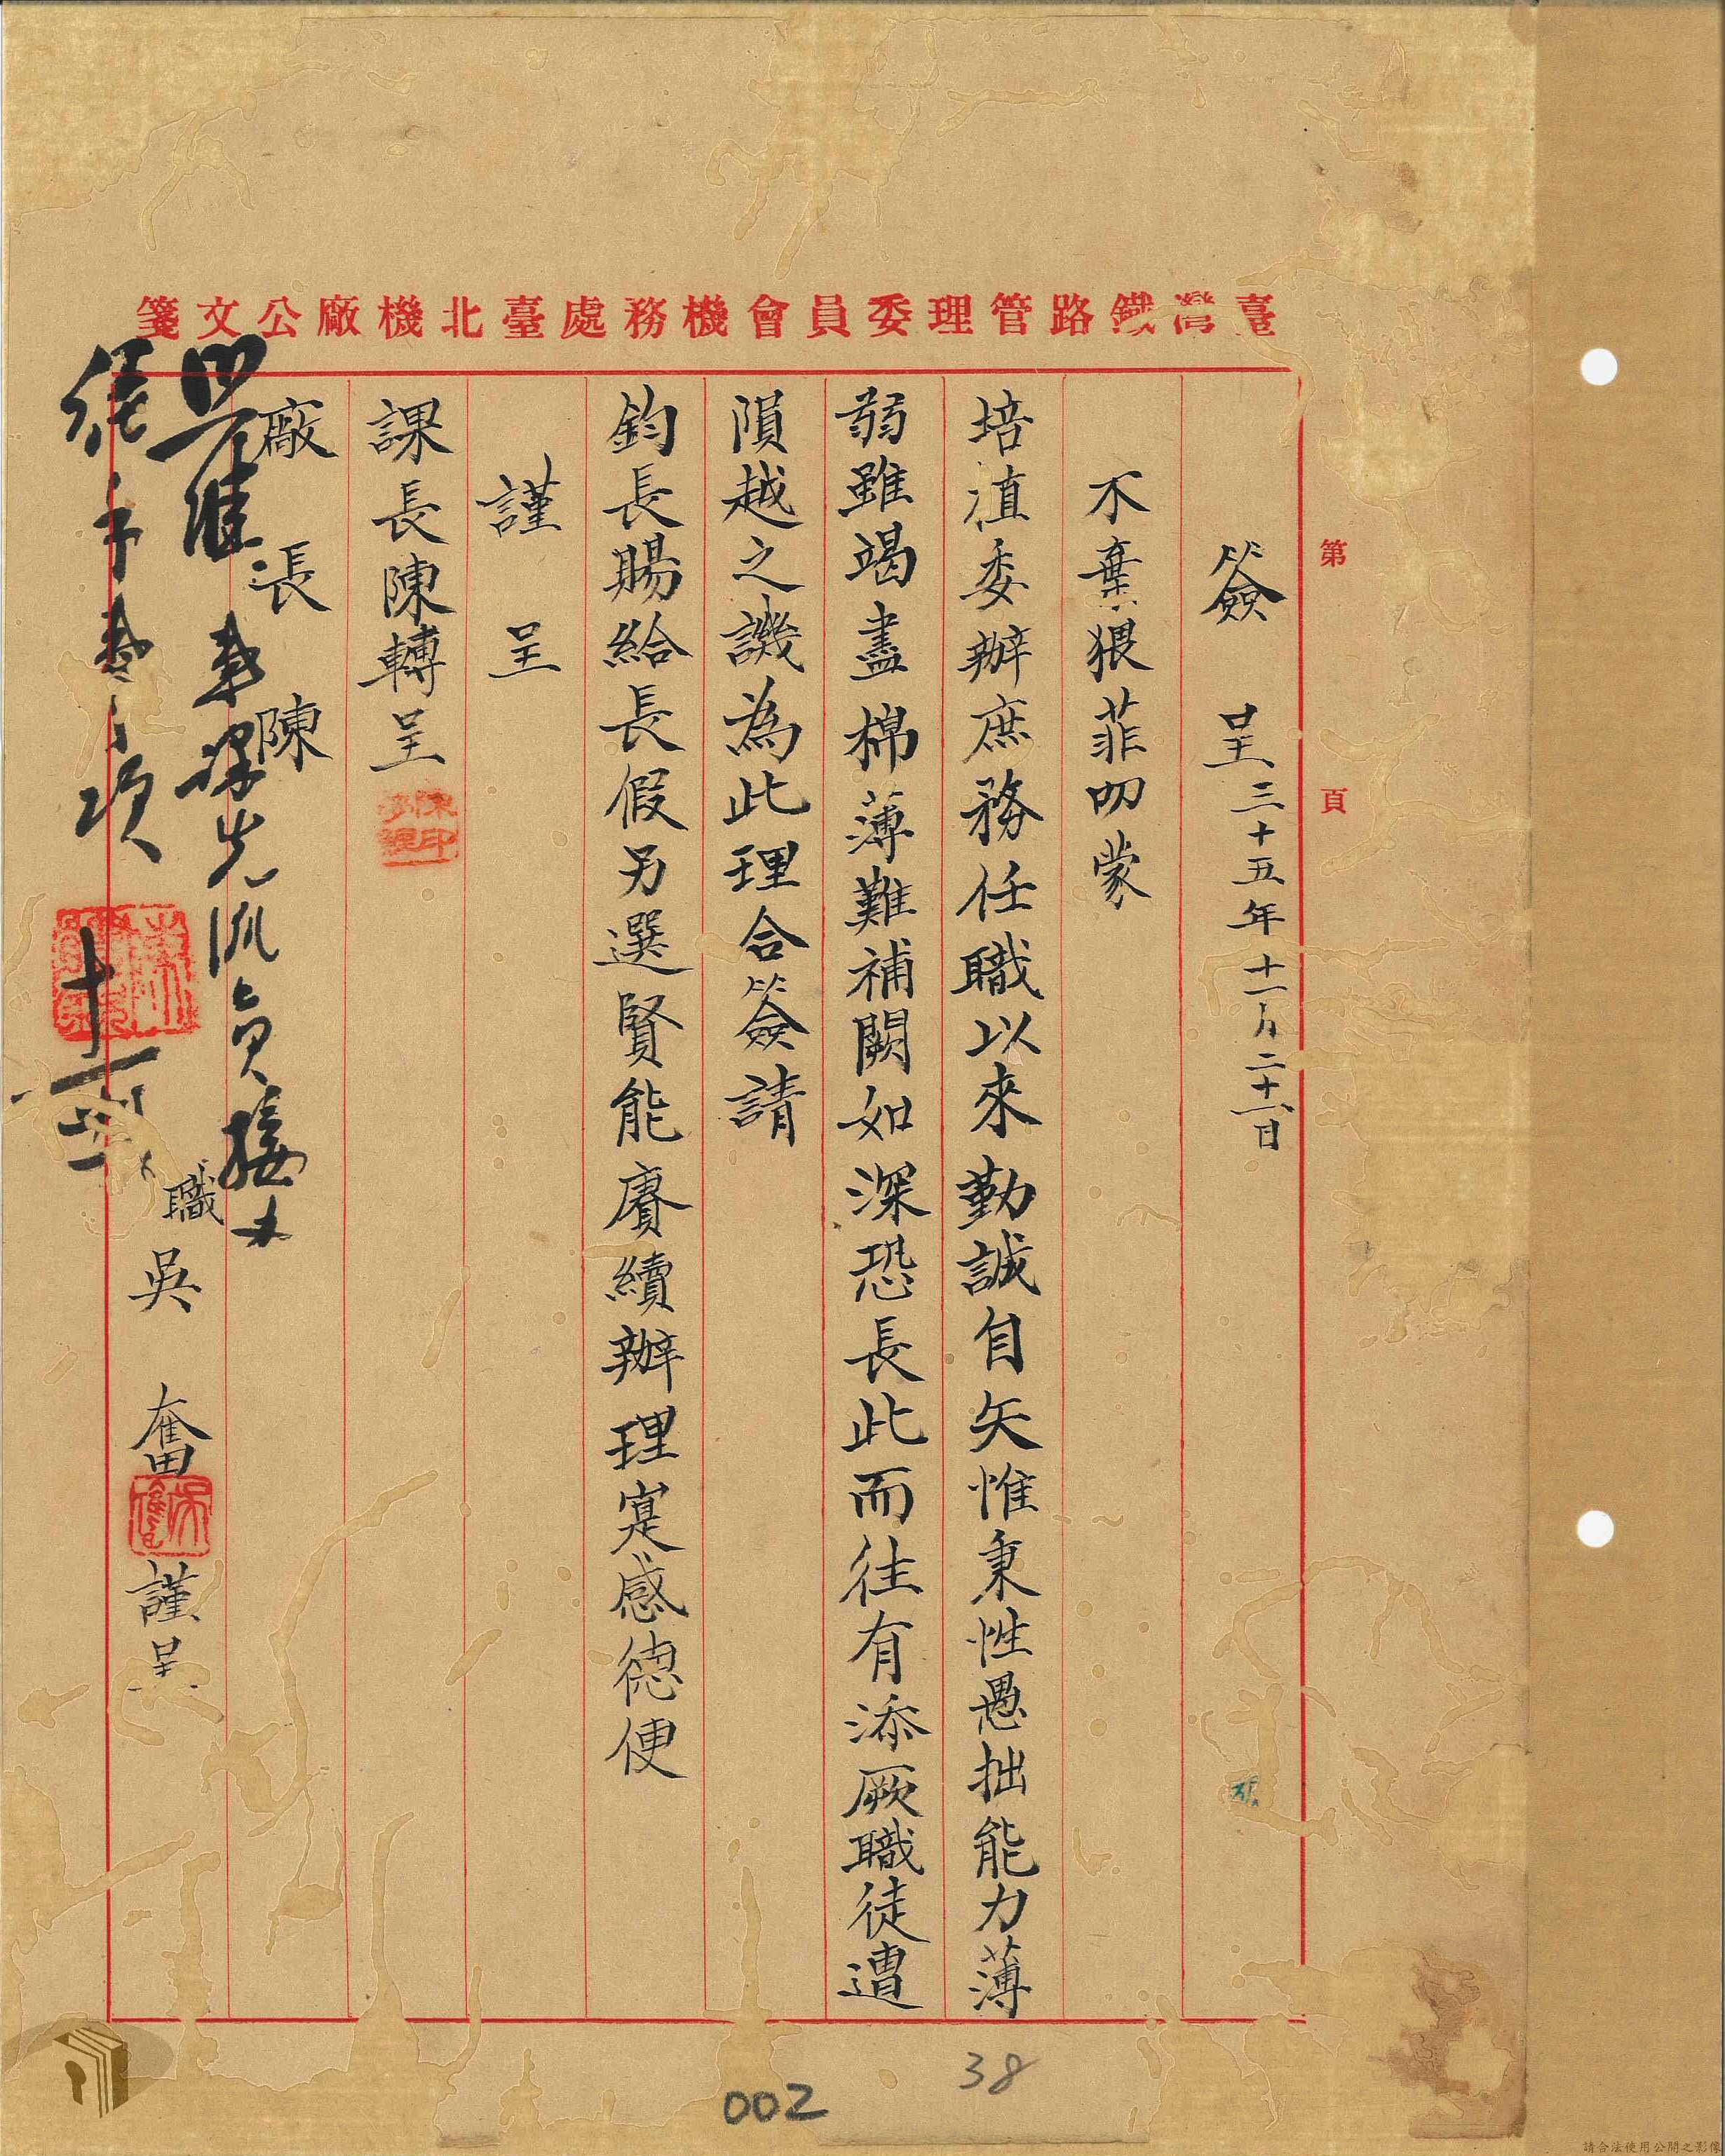 臺灣鐵路管理委員會機務處臺北機廠公文箋
第 頁
簽 呈 三十五年十一月二十一日
不棄猥菲叨蒙
培植委辦庶務任職以來勤誠自矢惟秉性愚拙能力薄
弱雖竭盡棉薄難補闕如深恐長此而往有添厥職徒遭
隕越之譏為此理合簽請
鈞長賜給長假另選賢能賡續辦理寔感德便
謹 呈
課長陳轉呈
廠 長 陳
職 吳 奮 謹呈
002
38
請合法使用公開之影像